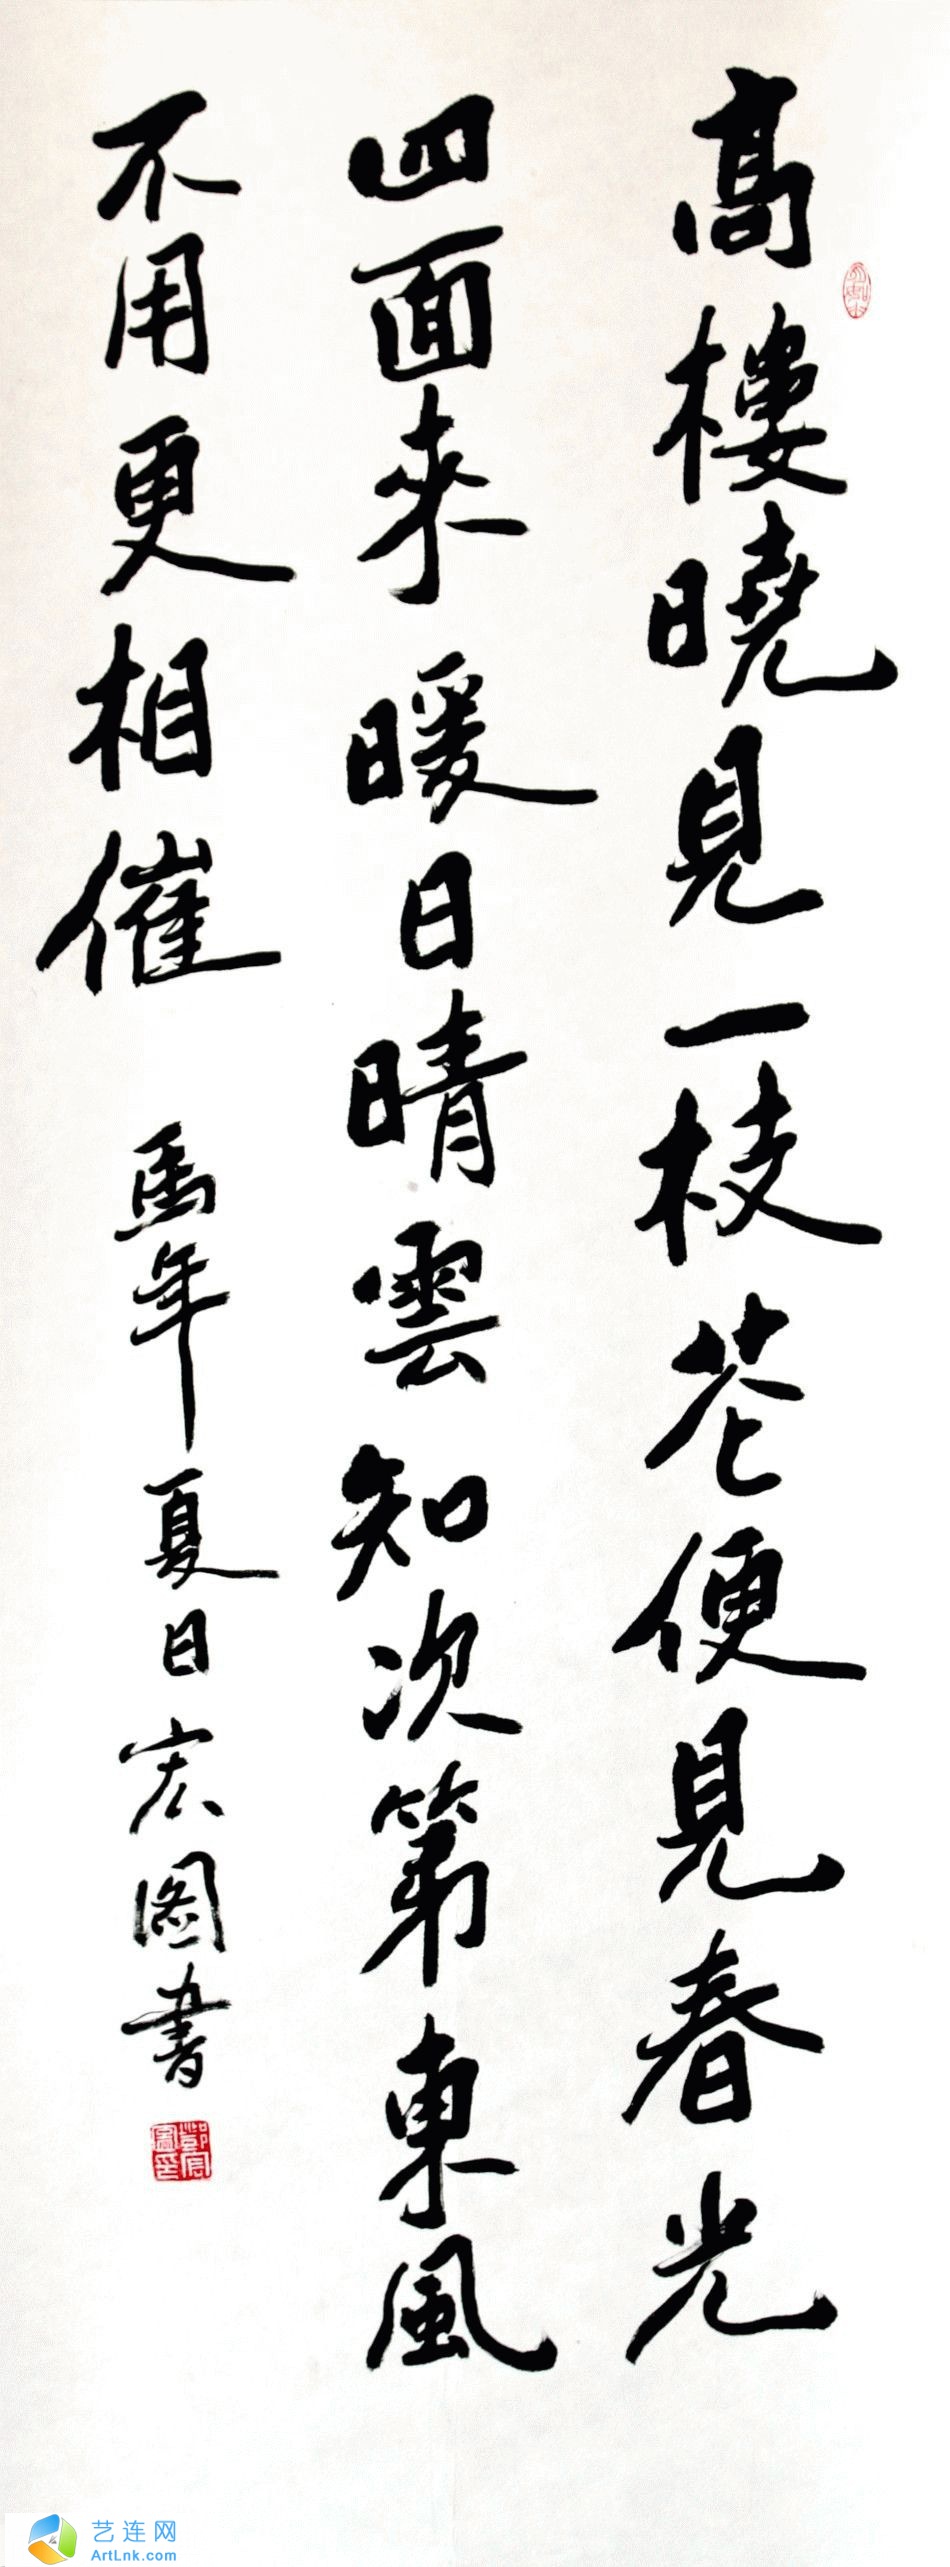 高樓曉見一枝花便見春光
四面來暖日晴雲知次第東風
不用更相催 馬年夏日宏圖書
鄧宏圖印
艺连网
ArtLnk.com